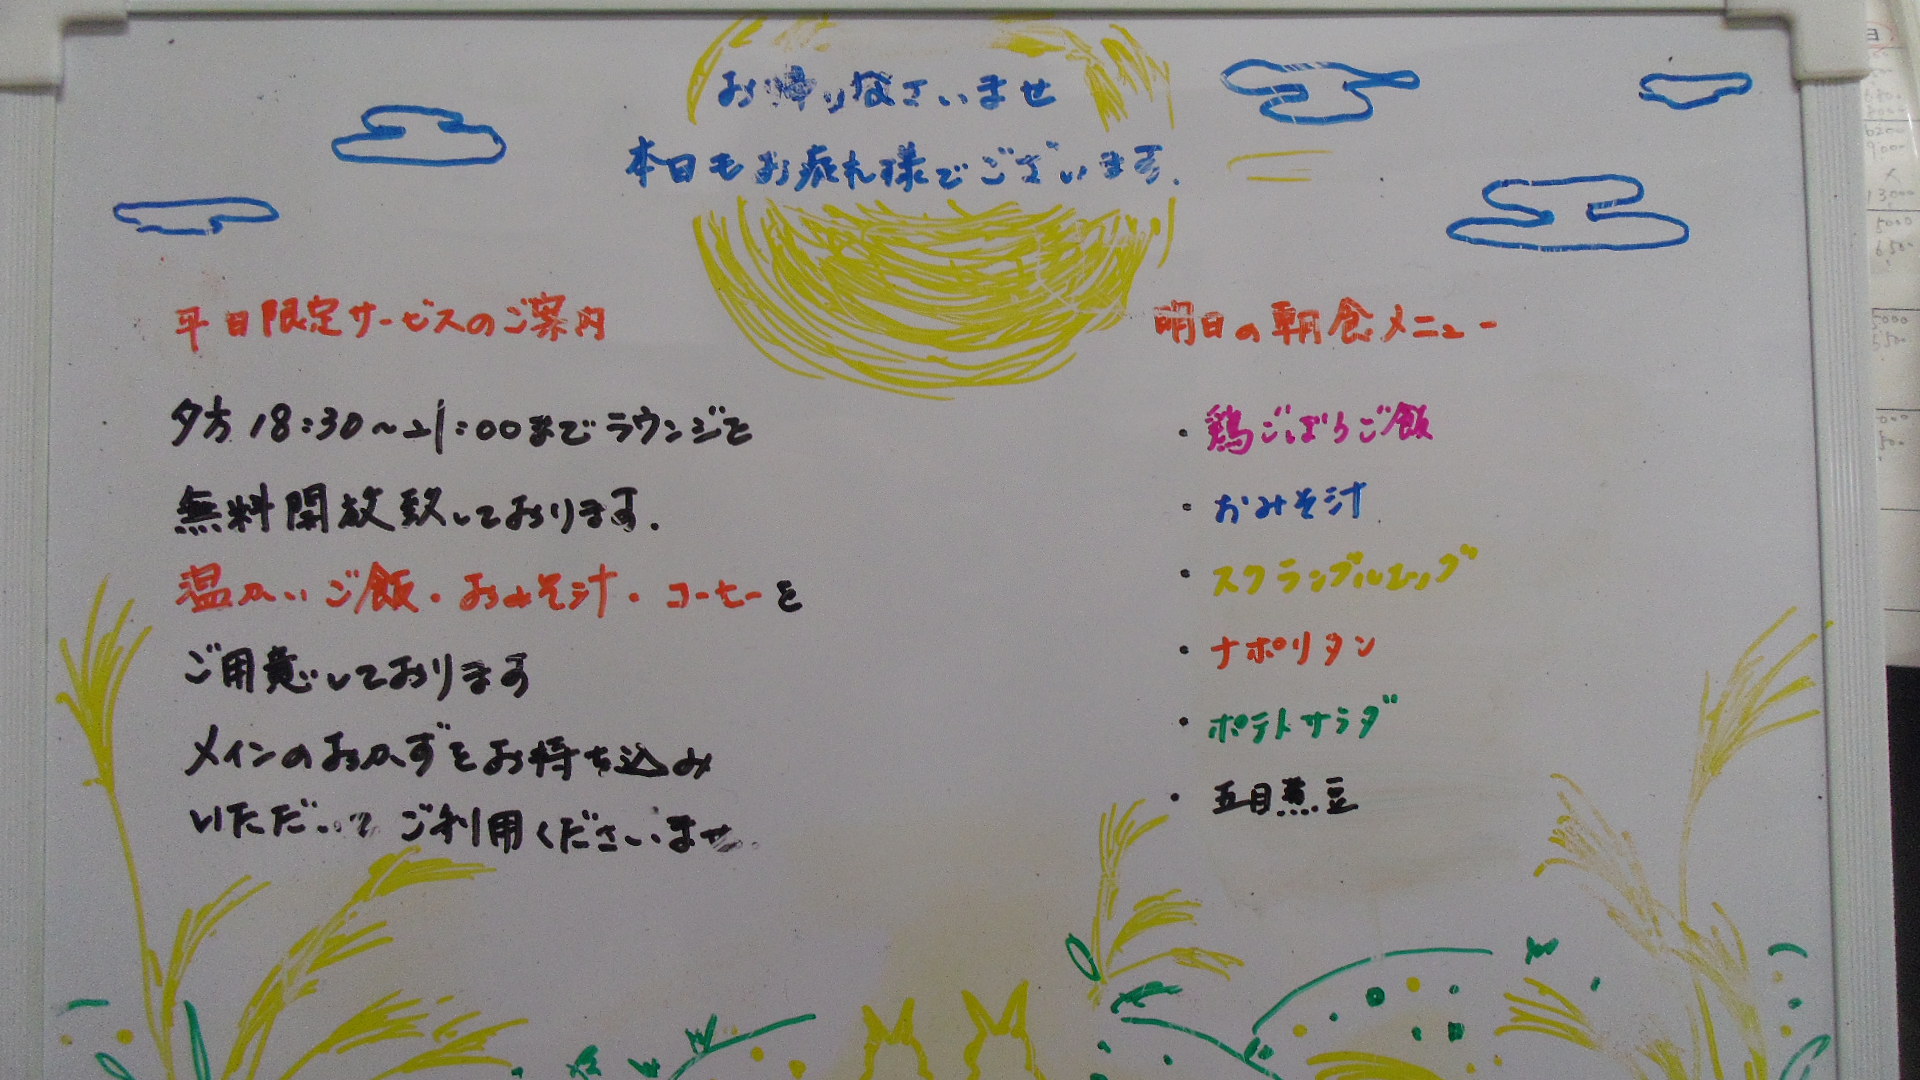 お帰りなさいませ
本日もお疲れ様でございます.
平日限定サービスのご案内
夕方18:30~21:00までラウンジを
無料開放致しております.
温かいご飯・おみそ汁・コーヒーを
ご用意しております
メインのおかずをお持ち込み
いただいて ご利用くださいませ.
明日の朝食メニュー
・鶏ごぼうご飯
・おみそ汁
・スクランブルエッグ
・ナポリタン
・ポテトサラダ
・五目煮豆